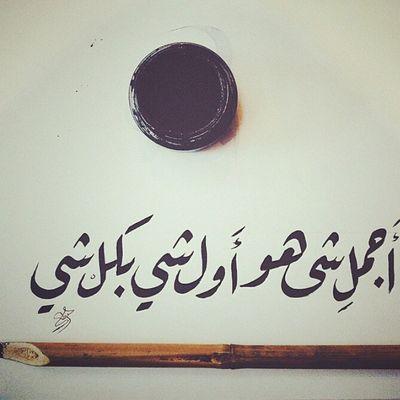 أَجملِ شى هو أَول شي بَكلْ شي